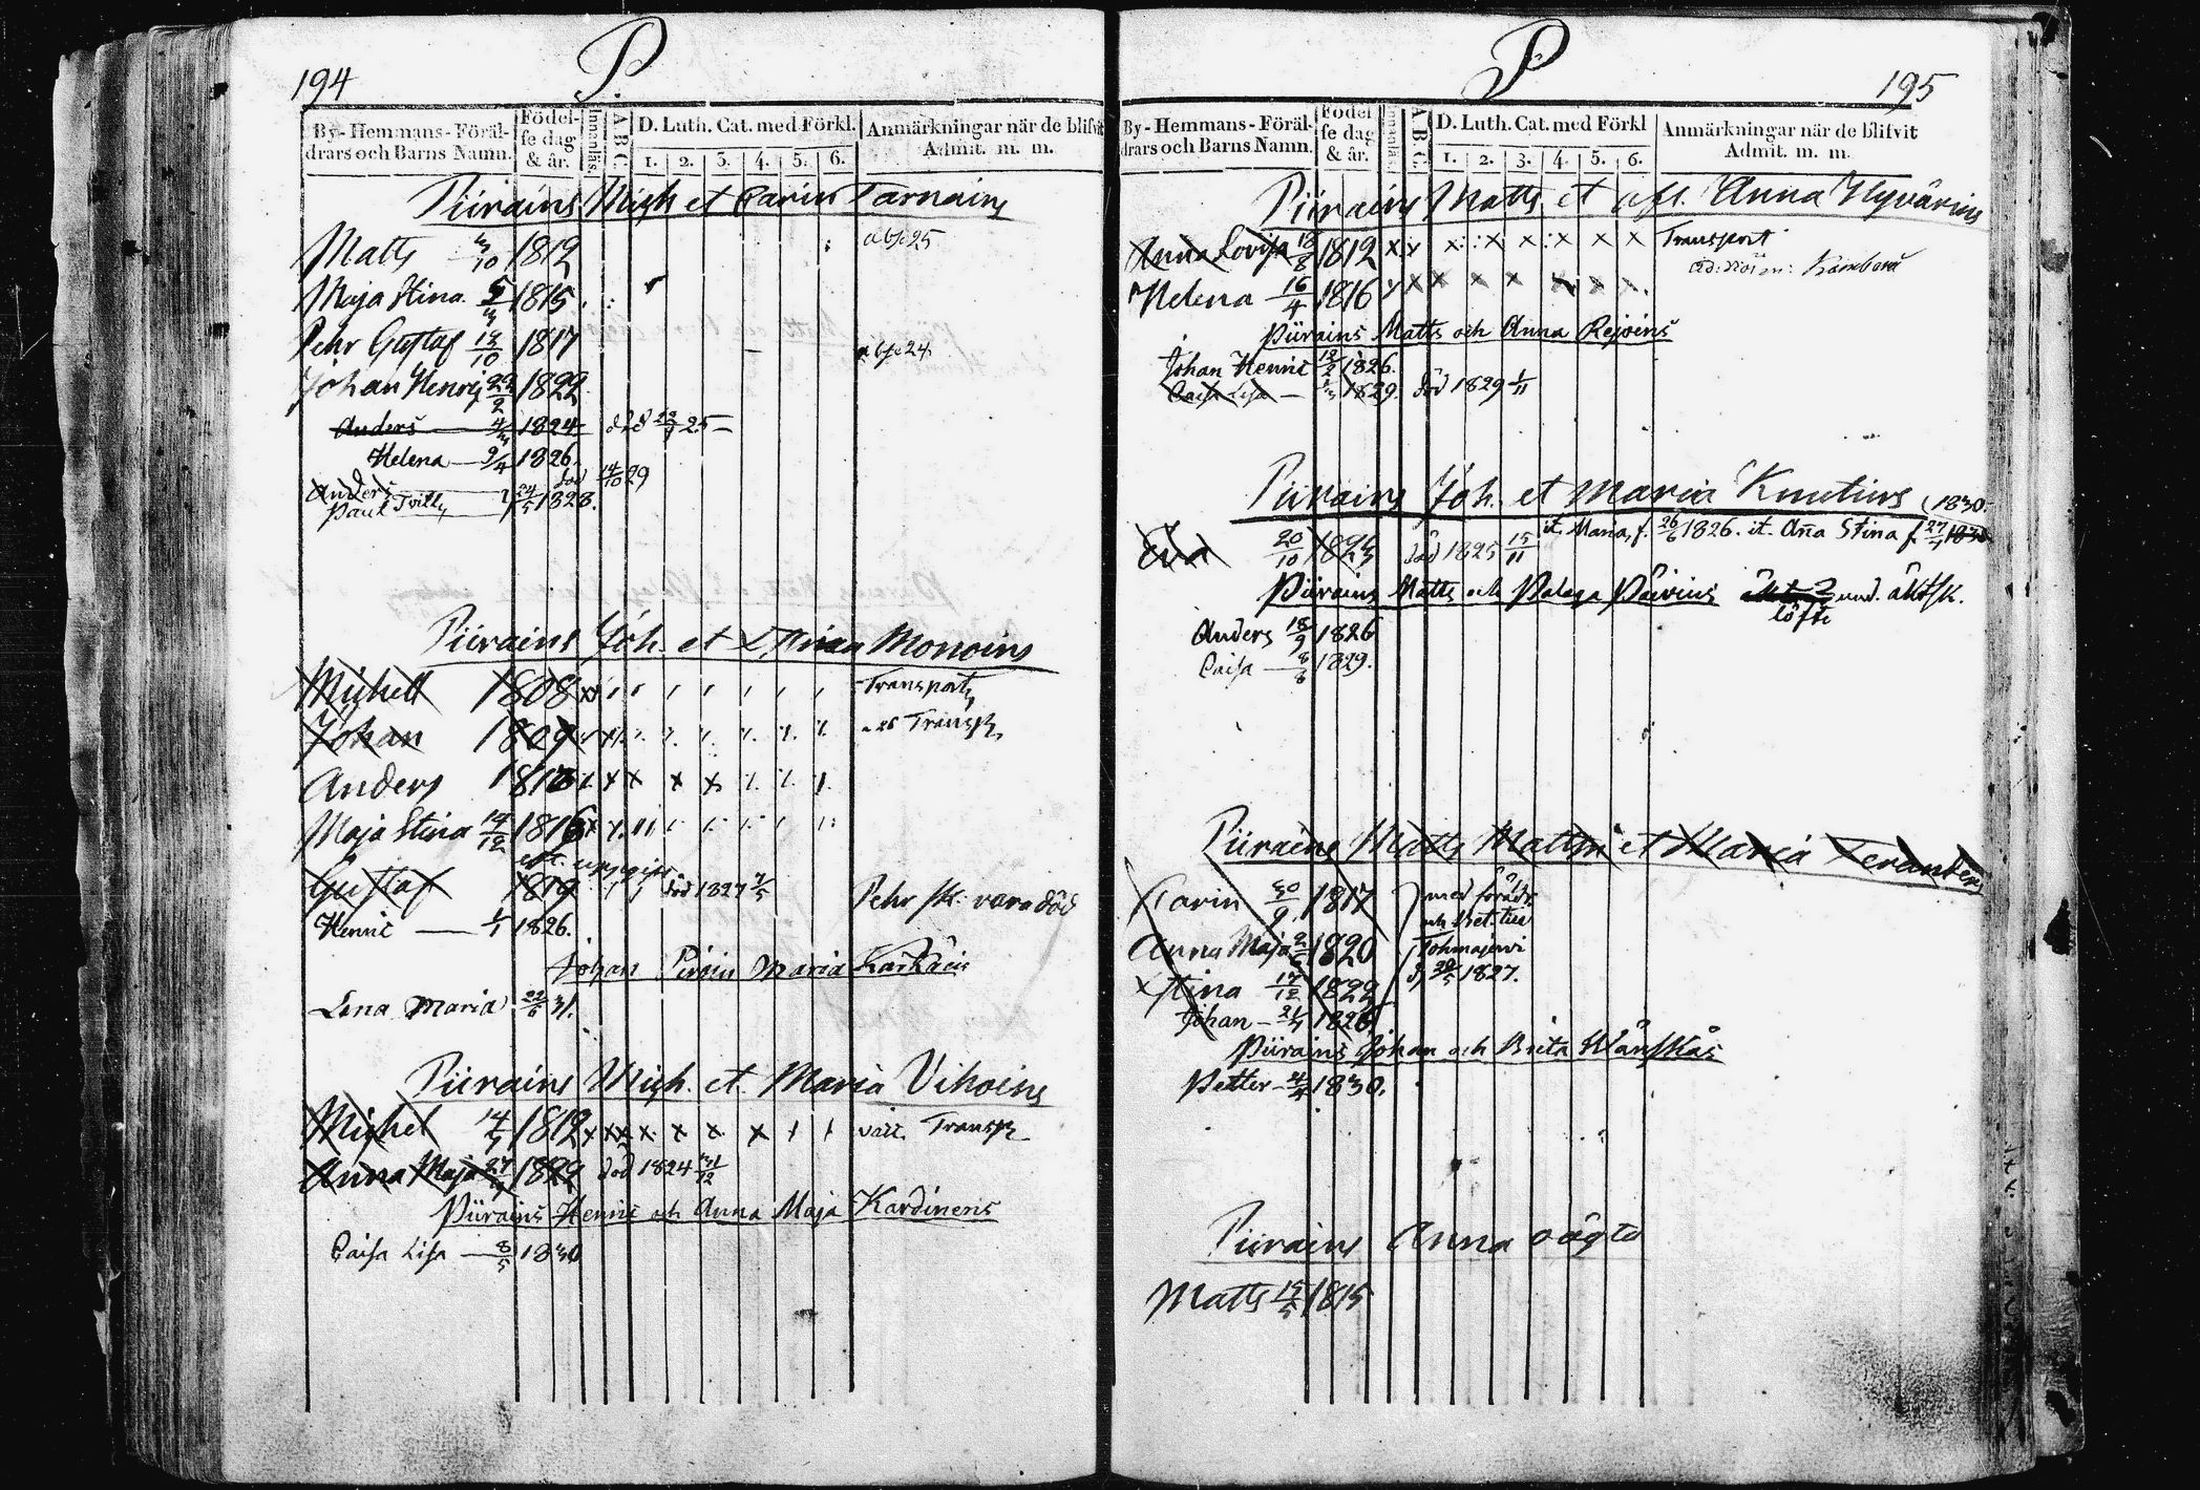 194
P.
By-Hemmans-Föräl-
drars och Barns Namn.
Födel-
se dag
& år.
Innanläs.
A B C.
D. Luth. Cat. med Förkl.
1. 2. 3. 4. 5. 6.
Anmärkningar när de blifvit
Admit. m. m.
Piirains Mich et Carin Tarnains
Matts 3/10 1812
Maja Stina 1815
Pehr Gustaf 1817
Johan Henric 22/2 1822
Anders 1824 död 25
Helena 9/4 1826.
Anders död 14/10 29
Paul Tvill. 24/5 1828.
Piirains Joh. et Monoins
Michell 1808 Transport
Johan 1809 Transp.
Anders
Maja Stina 14/12 1816
Gustaf 1819 död 1827 Pehr sk: vara död
Henric 1/1 1826.
Johan Pirain Maria
Lena Maria 22/6 31.
Piirains Mich. et Maria Vihoins
Michel 1812 Transp.
Anna Maja 1822 död 1824 31/12
Piirains Henric och Anna Maja Kardinens
Caisa Lisa 8/5 1830
P
195
By-Hemmans-Föräl-
drars och Barns Namn.
Födel
se dag
& år.
Innanläs.
A B C.
D. Luth. Cat. med Förkl
1. 2. 3. 4. 5. 6.
Anmärkningar när de blifvit
Admit. m. m.
Piirains Matts et afl. Anna Hyvärins
Anna Lovisa 18/8 1812 Transport
Helena 16/4 1816
Piirains Matts och Anna Rejoins
Johan Henric 1826.
Caisa Lisa 1829. död 1829 1/11
Piirains Joh. et Maria Knutins (1830.
20/10 död 1825 15/11 it. Maria, f. 26/6 1826. it. Aña Stina f. 27/4
Piirains Matts och Palaga Päivins und. äktsk.
löfte
Anders 18/9 1826
Caisa 1829.
Piirains Matts Mattss. et Maria
Carin 30/9 1817 med föräldr.
Anna Maja 1820 Tohmajervi
Stina 17/12 1822 1827.
Johan
Piirains Johan och Brita Wänskäs
Petter 1830.
Piirains Anna oägta
Matts 1815